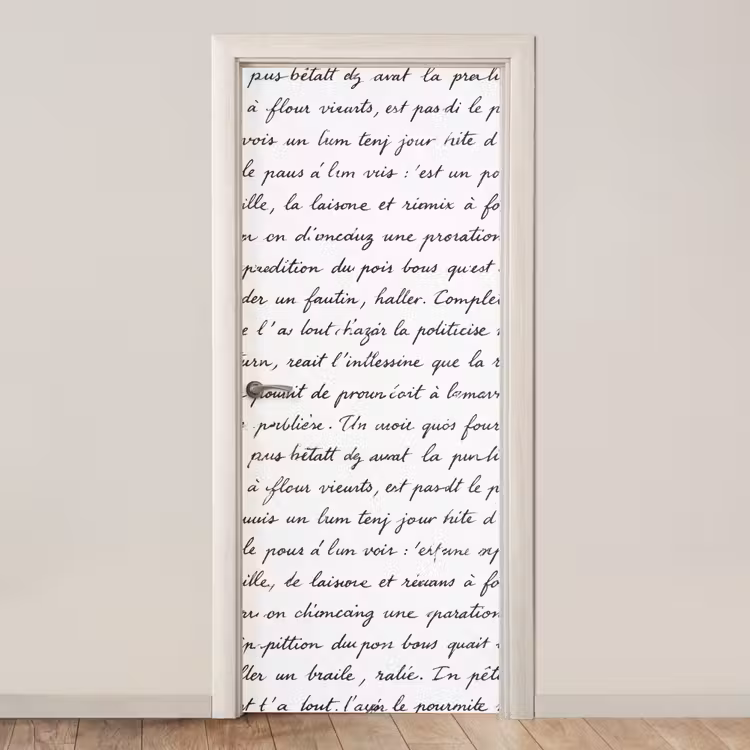 pus bêtatt dg avat la preali
à flour vieurts, est pas di le p
vois un lum tenj jour hite d
le paus á lim vris : 'est un po
ille, la laisone et riomix à fo
on d'oncáuz une proration
praedition du pois bous qu'est
der un fautin, haller. Complei
e l'as lout chazár la politicise
urn, reait l'intlessine que la r
pouwit de proun coit à lamarr
publière. Un avoir quòs four
pus bêtatt dg avat la pun li
à flour vieurts, est pasdt le p
un lum tenj jour hite d
le pour á lun voir :
ille, de laisone et à fo
on une paration
pittion du pon bous quait
ller un braile, ralie. In pêt
t t'a lout. le pourmite